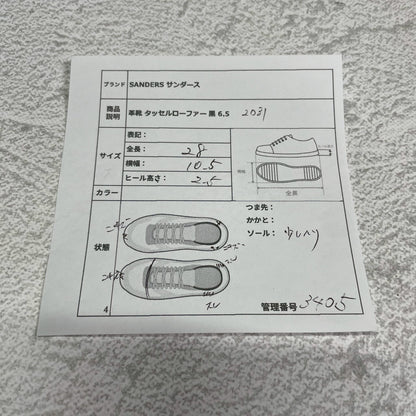 ブランド SANDERS サンダース
商品説明 革靴 タッセルローファー 黒 6.5 2031
サイズ
表記：
全長： 28
横幅： 10.5
ヒール高さ： 2.5
ヒール高さ
横幅
全長
カラー
状態
つま先：
かかと：
ソール： 少しヘリ
4
管理番号 3405